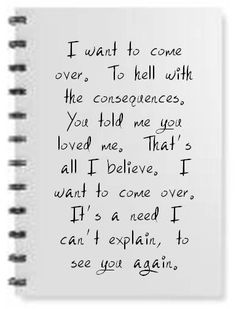 I want to come
over. To hell with
the consequences.
You told me you
loved me. That's
all I believe. I
want to come over.
It's a need I
can't explain, to
see you again.